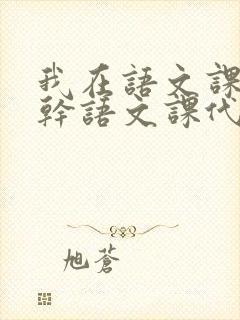 我在語文課
幹語文課代
旭蒼